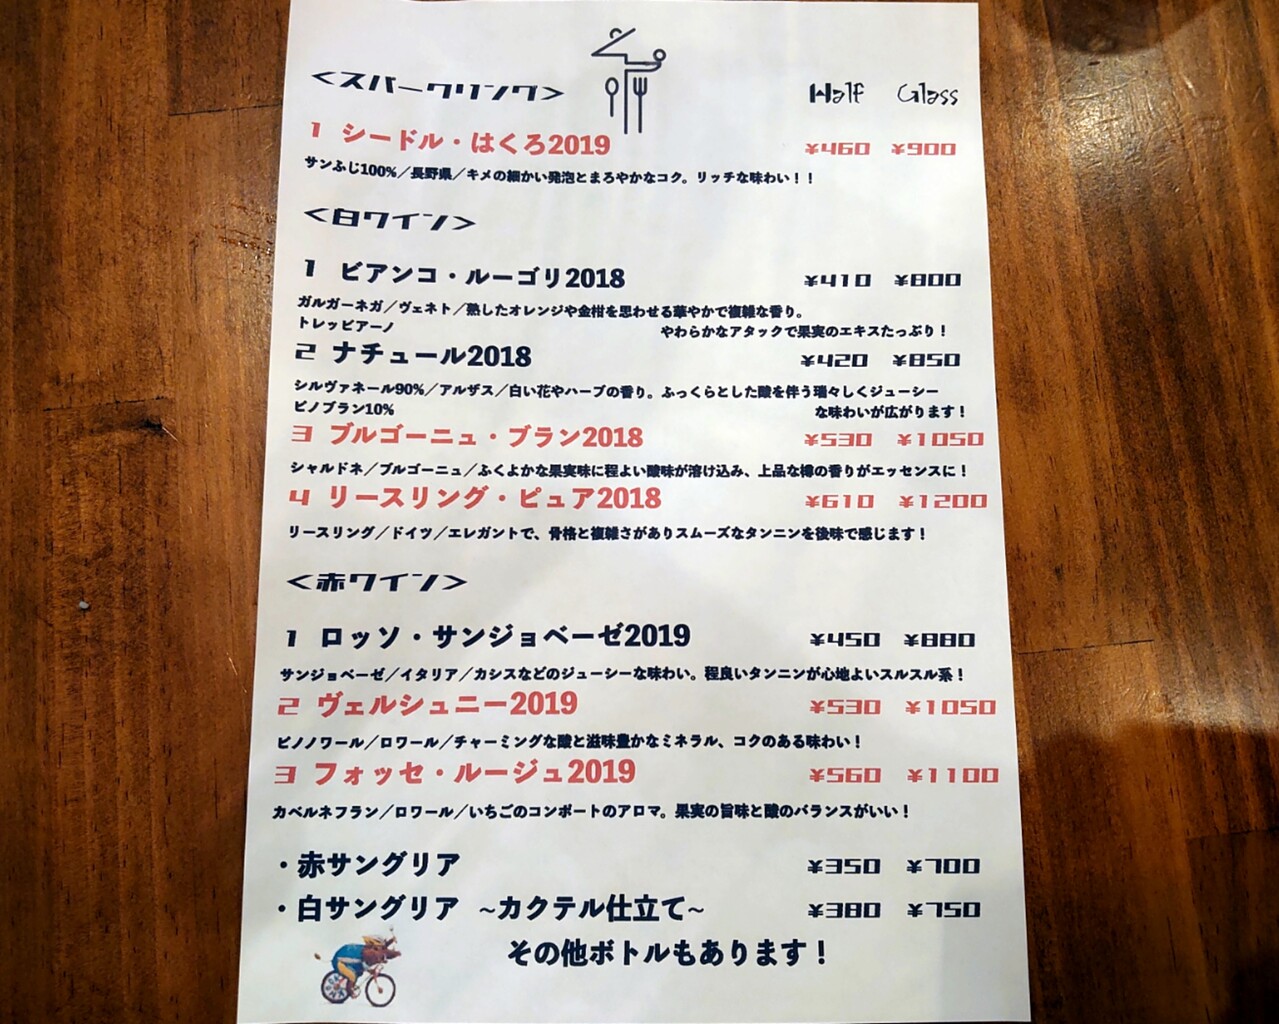 <スパークリング> Half Glass
1 シードル・はくろ2019 ¥460 ¥900
サンふじ100%／長野県／キメの細かい発泡とまろやかなコク。リッチな味わい！！
<白ワイン>
1 ビアンコ・ルーゴリ2018 ¥410 ¥800
ガルガーネガ／ヴェネト／熟したオレンジや金柑を思わせる華やかで複雑な香り。
トレッビアーノ やわらかなアタックで果実のエキスたっぷり！
2 ナチュール2018 ¥420 ¥850
シルヴァネール90%／アルザス／白い花やハーブの香り。ふっくらとした酸を伴う瑞々しくジューシー
ピノブラン10% な味わいが広がります！
3 ブルゴーニュ・ブラン2018 ¥530 ¥1050
シャルドネ／ブルゴーニュ／ふくよかな果実味に程よい酸味が溶け込み、上品な樽の香りがエッセンスに！
4 リースリング・ピュア2018 ¥610 ¥1200
リースリング／ドイツ／エレガントで、骨格と複雑さがありスムーズなタンニンを後味で感じます！
<赤ワイン>
1 ロッソ・サンジョベーゼ2019 ¥450 ¥880
サンジョベーゼ／イタリア／カシスなどのジューシーな味わい。程良いタンニンが心地よいスルスル系！
2 ヴェルシュニー2019 ¥530 ¥1050
ピノノワール／ロワール／チャーミングな酸と滋味豊かなミネラル、コクのある味わい！
3 フォッセ・ルージュ2019 ¥560 ¥1100
カベルネフラン／ロワール／いちごのコンポートのアロマ。果実の旨味と酸のバランスがいい！
・赤サングリア ¥350 ¥700
・白サングリア ~カクテル仕立て~ ¥380 ¥750
その他ボトルもあります！